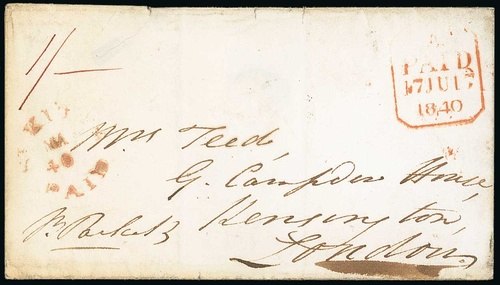 1/-
PAID
17 JU 17
1840
40
PAID
Mrs Teed,
G. Campden House,
Kensington,
London
Pr. Packet